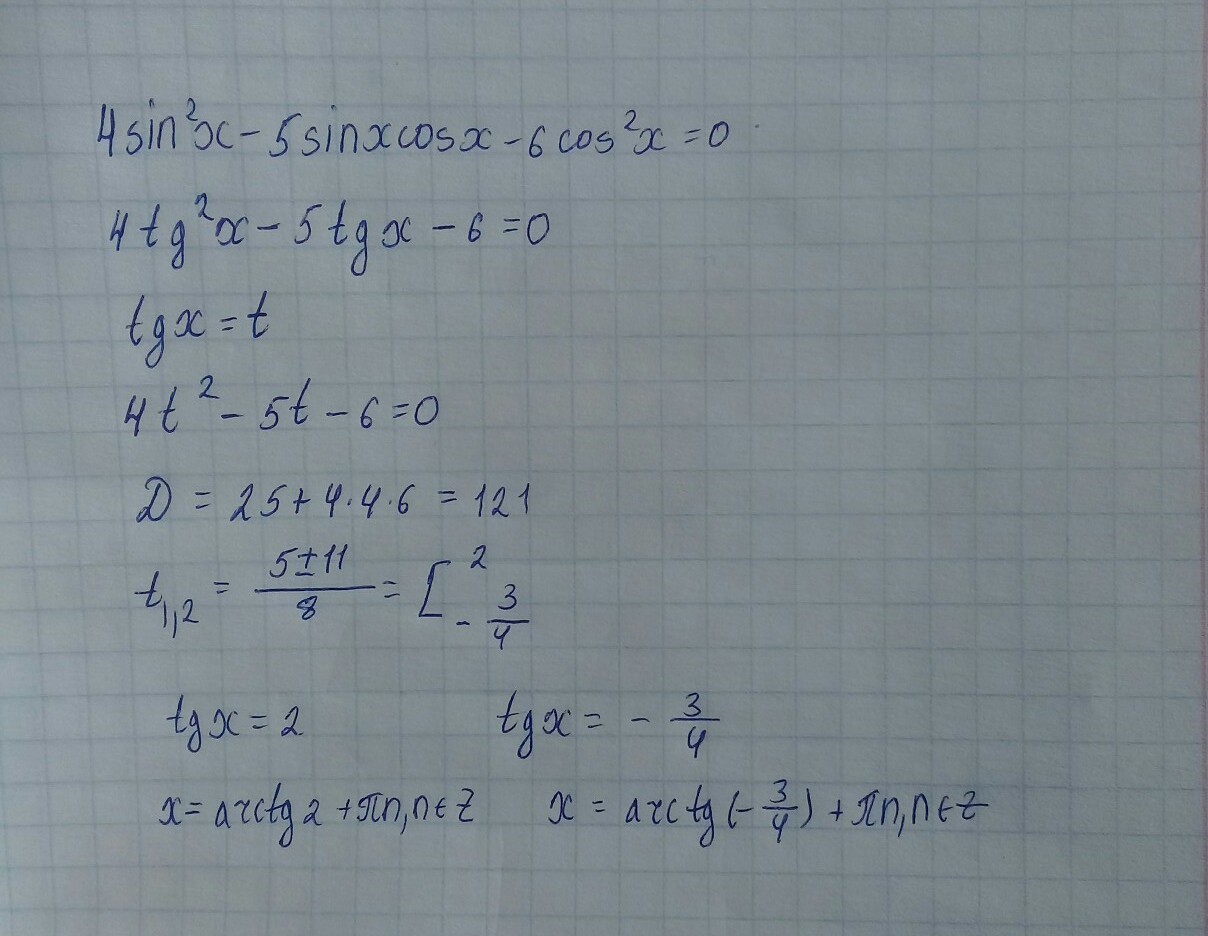 4sin²x - 5sinxcosx - 6cos²x = 0
4tg²x - 5tgx - 6 = 0
tgx = t
4t² - 5t - 6 = 0
D = 25 + 4·4·6 = 121
t₁,₂ = (5±11)/8 = [ 2 ; -3/4
tgx = 2 tgx = -3/4
x = arctg2 + πn, n∈Z x = arctg(-3/4) + πn, n∈Z